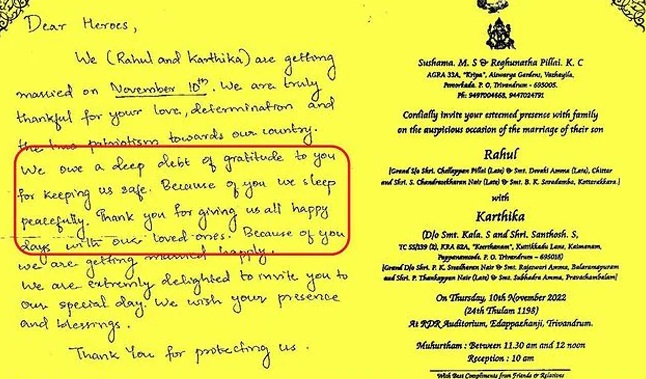 Dear Heroes,
We (Rahul and Karthika) are getting
married on November 10th. We are truly
thankful for your love, determination and
the true patriotism towards our country.
We owe a deep debt of gratitude to you
for keeping us safe. Because of you we sleep
peacefully. Thank you for giving us all happy
days with our loved ones. Because of you
we are getting married happily.
We are extremly delighted to invite you to
our special day. We wish your presence
and blessings.
Thank You for protecting us.
Sushama. M. S & Reghunatha Pillai. K. C
AGRA 33A, "Kripa", Aiswarya Gardens, Vazhayila,
Peroorkada. P. O, Trivandrum - 695005.
Ph: 9497004668, 9447024791
Cordially invite your esteemed presence with family
on the auspicious occasion of the marriage of their son
Rahul
[Grand S/o Shri. Chellappan Pillai (Late) & Smt. Devaki Amma (Late), Chittar
and Shri. S. Chandrasekharan Nair (Late) & Smt. B. K. Saradamba, Kottarakkara.]
with
Karthika
(D/o Smt. Kala. S and Shri. Santhosh. S,
TC 55/139 (2), KRA 62A, "Keerthanam", Kuttikkadu Lane, Kaimanam,
Pappanamcode. P. O. Trivandrum - 695018)
[Grand D/o Shri. P. K. Sreedharan Nair & Smt. Rajeswari Amma, Balaramapuram
and Shri. P. Thankappan Nair (Late) & Smt. Subhadra Amma, Pravachambalam]
On Thursday, 10th November 2022
(24th Thulam 1198)
At RDR Auditorium, Edappazhanji, Trivandrum.
Muhurtham : Between 11.30 am and 12 noon
Reception : 10 am
With Best Compliments from Friends & Relations